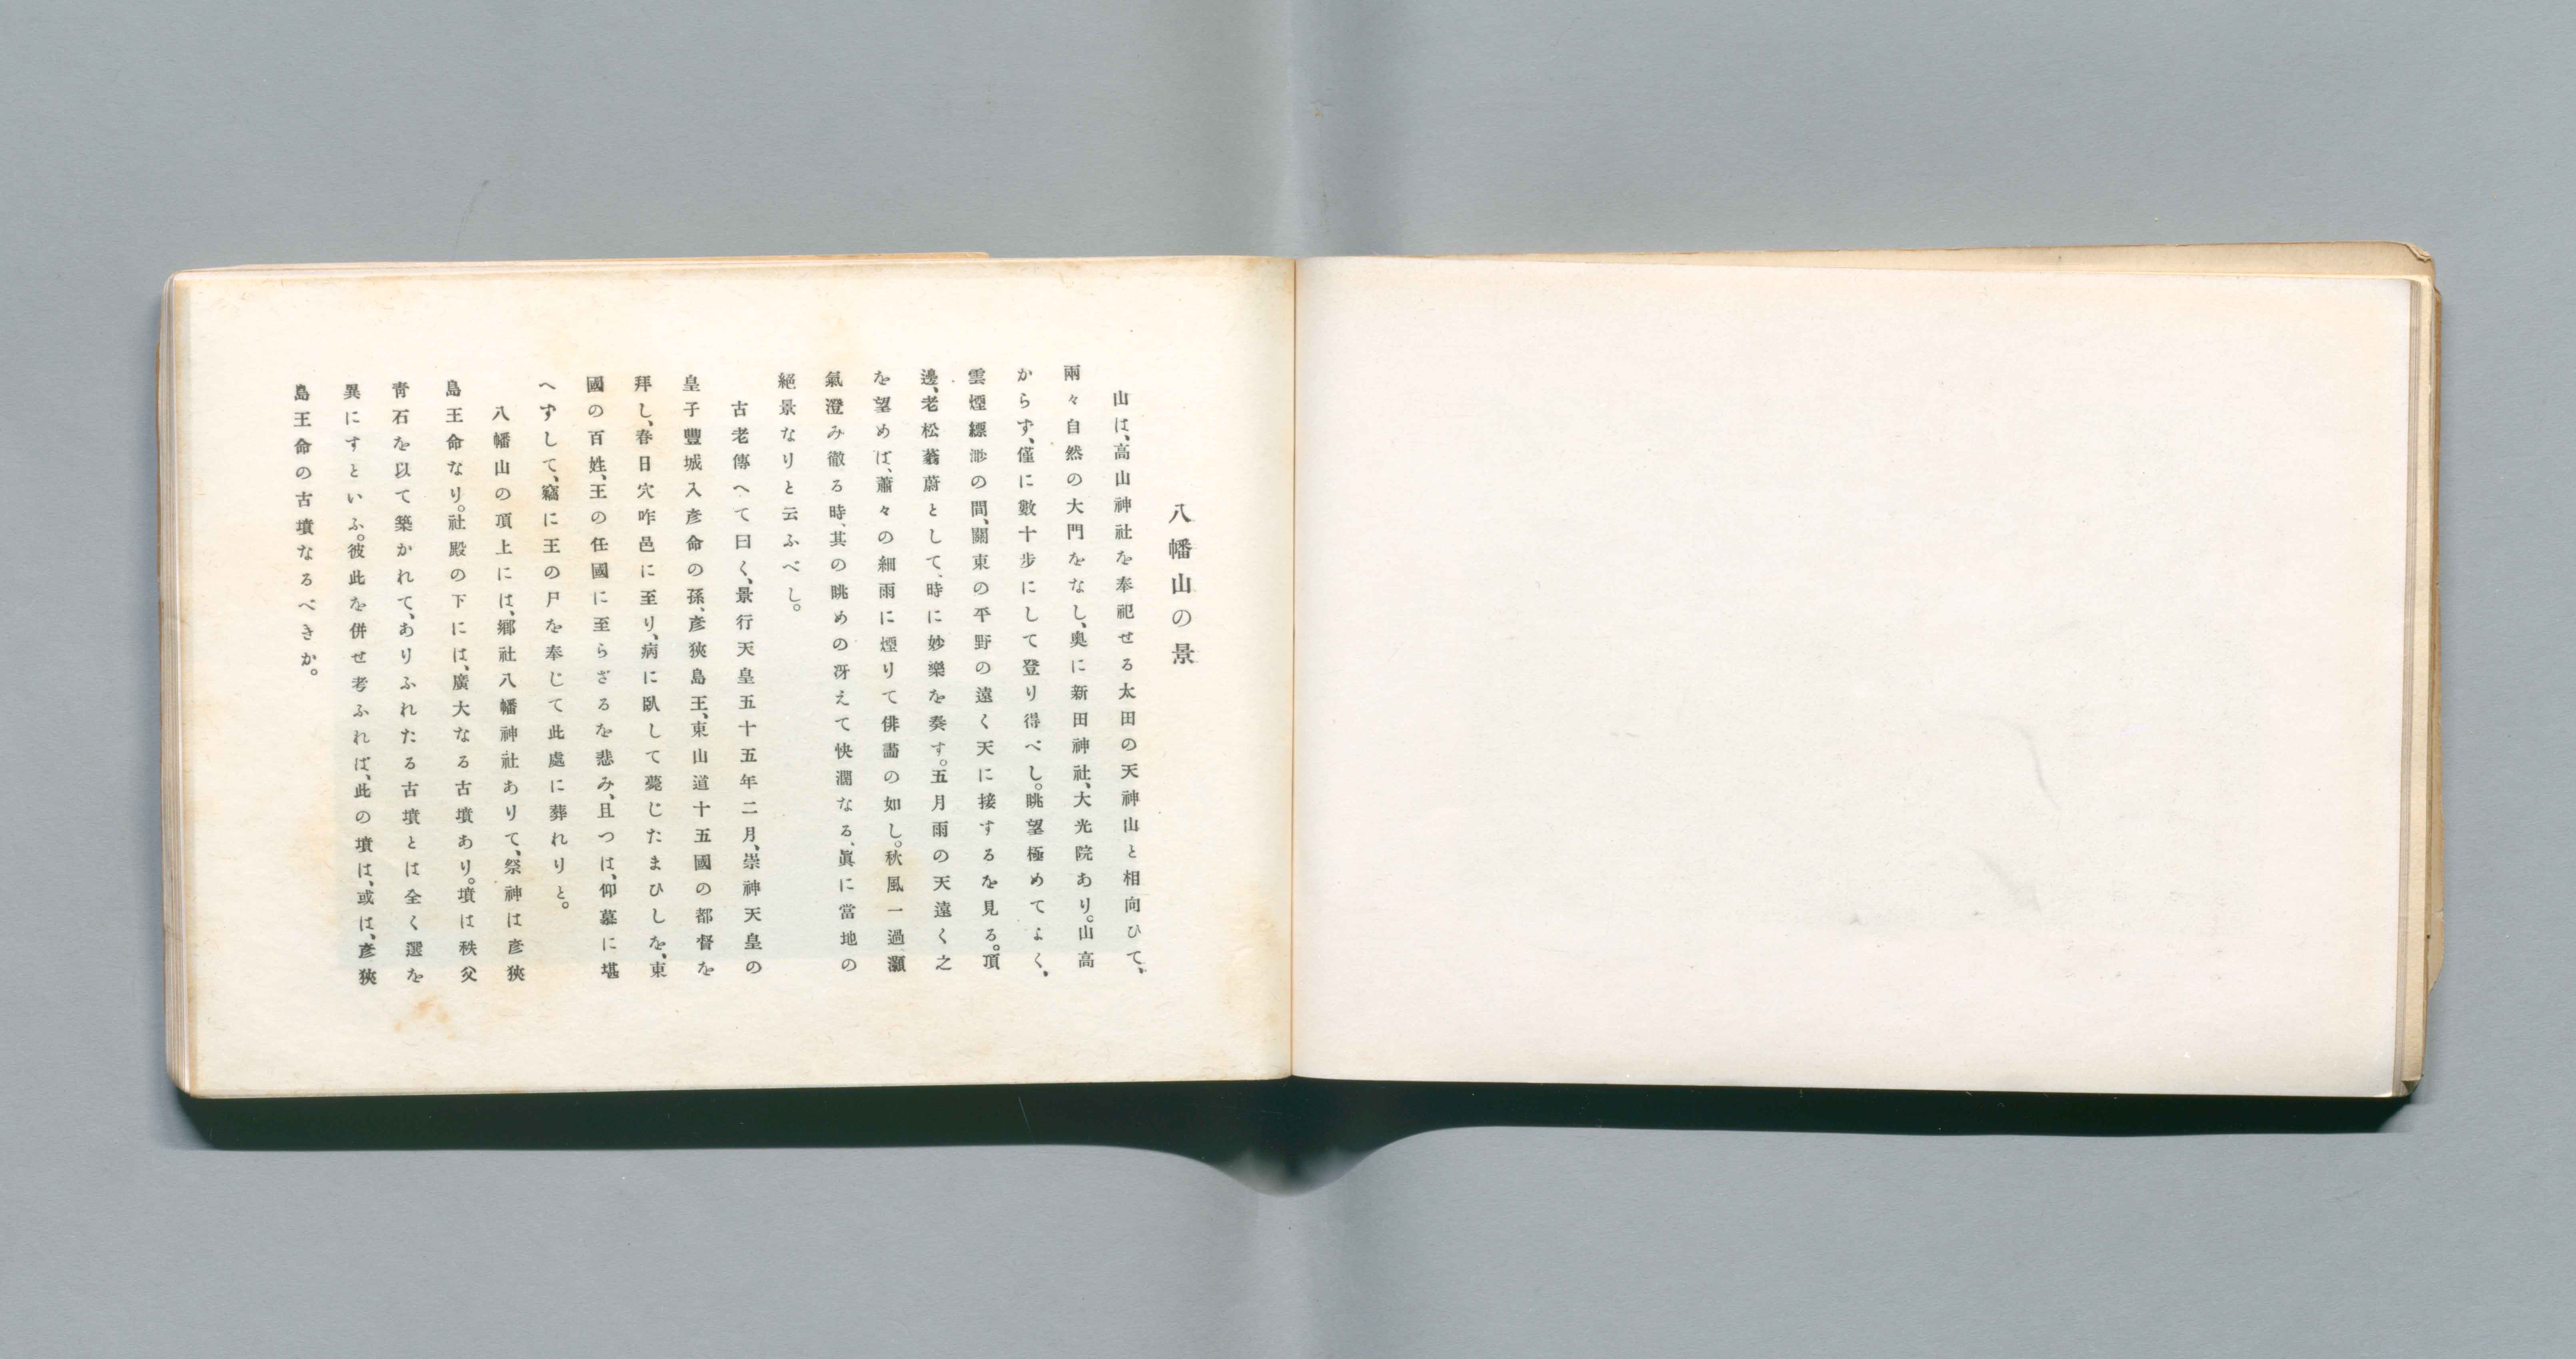 八幡山の景
山は、高山神社を奉祀せる太田の天神山と相向ひて、
兩々自然の大門をなし、奥に新田神社、大光院あり。山高
からず、僅に數十步にして登り得べし。眺望極めてよく、
雲煙縹渺の間、關東の平野の遠く天に接するを見る。頂
邊、老松蓊蔚として、時に妙樂を奏す。五月雨の天遠く之
を望めば、蕭々の細雨に煙りて俳畵の如し。秋風一過灝
氣澄み徹る時、其の眺めの冴えて快濶なる、眞に當地の
絕景なりと云ふべし。
古老傳へて曰く、景行天皇五十五年二月、崇神天皇の
皇子豐城入彦命の孫、彦狹島王、東山道十五國の都督を
拜し、春日穴咋邑に至り、病に臥して薨じたまひしを、東
國の百姓、王の任國に至らざるを悲み、且つは、仰慕に堪
へずして、竊に王の尸を奉じて此處に葬れりと。
八幡山の頂上には、鄕社八幡神社ありて、祭神は彦狹
島王命なり。社殿の下には、廣大なる古墳あり。墳は秩父
靑石を以て築かれて、ありふれたる古墳とは全く選を
異にすといふ。彼此を併せ考ふれば、此の墳は、或は、彦狹
島王命の古墳なるべきか。